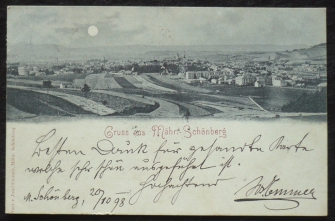 Gruss aus Mähr.-Schönberg
Besten Dank für gesandte Karte
welche sehr schön ausgeführt ist.
Hochachtend
M. Schönberg, 20/10 98